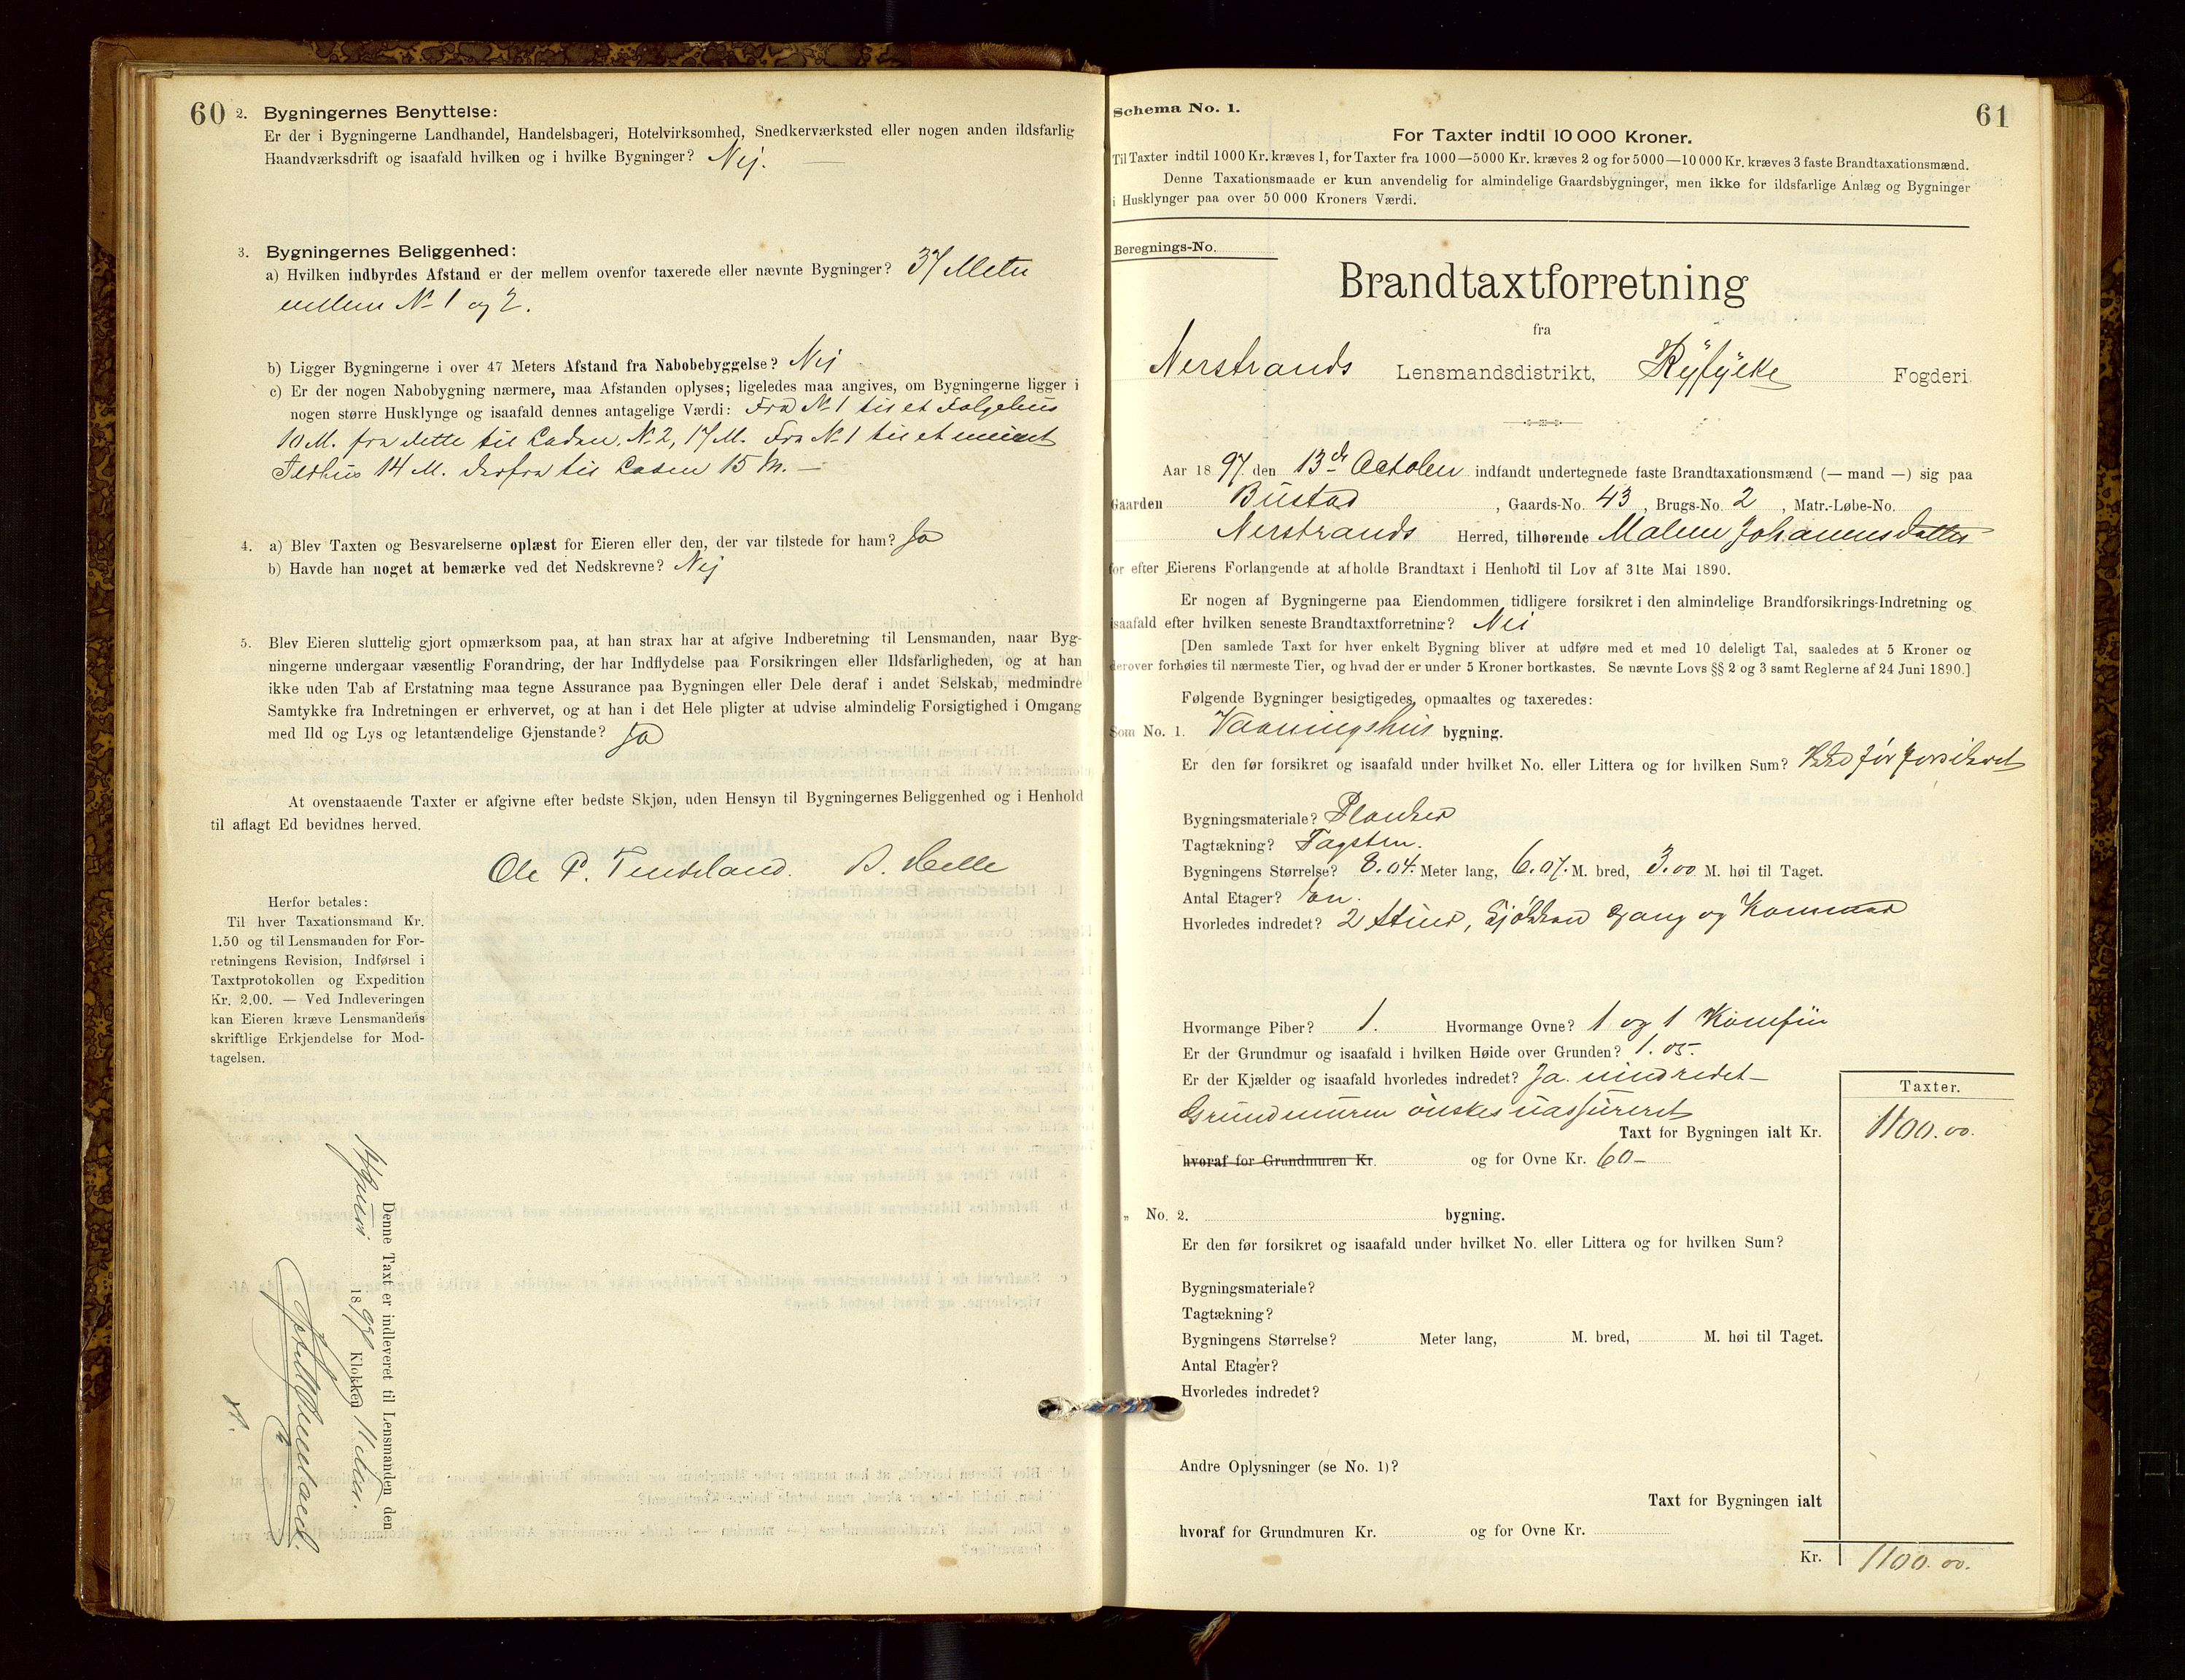 60
2. Bygningernes Benyttelse:
Er der i Bygningerne Landhandel, Handelsbageri, Hotelvirksomhed, Snedkerværksted eller nogen anden ildsfarlig
Haandværksdrift og isaafald hvilken og i hvilke Bygninger? Nej. —
3. Bygningernes Beliggenhed:
a) Hvilken indbyrdes Afstand er der mellem ovenfor taxerede eller nævnte Bygninger? 37 Meter
mellem No 1 og 2.
b) Ligger Bygningerne i over 47 Meters Afstand fra Nabobebyggelse? Nej
c) Er der nogen Nabobygning nærmere, maa Afstanden oplyses; ligeledes maa angives, om Bygningerne ligger i
nogen større Husklynge og isaafald dennes antagelige Værdi: Fra No 1 til et Følgehus
10 M. fra dette til Laden No 2, 17 M. Fra No 1 til et mindet
Ildhus 14 M. derfra til Laden 15 M. —
4. a) Blev Taxten og Besvarelserne oplæst for Eieren eller den, der var tilstede for ham? Ja
b) Havde han noget at bemærke ved det Nedskrevne? Nej
5. Blev Eieren sluttelig gjort opmærksom paa, at han strax har at afgive Indberetning til Lensmanden, naar Byg-
ningerne undergaar væsentlig Forandring, der har Indflydelse paa Forsikringen eller Ildsfarligheden, og at han
ikke uden Tab af Erstatning maa tegne Assurance paa Bygningen eller Dele deraf i andet Selskab, medmindre
Samtykke fra Indretningen er erhvervet, og at han i det Hele pligter at udvise almindelig Forsigtighed i Omgang
med Ild og Lys og letantændelige Gjenstande? Ja
At ovenstaaende Taxter er afgivne efter bedste Skjøn, uden Hensyn til Bygningernes Beliggenhed og i Henhold
til aflagt Ed bevidnes herved.
Ole P. Tindeland. B. Helle
Herfor betales:
Til hver Taxationsmand Kr.
1.50 og til Lensmanden for For-
retningens Revision, Indførsel i
Taxtprotokollen og Expedition
Kr. 2.00. — Ved Indleveringen
kan Eieren kræve Lensmandens
skriftlige Erkjendelse for Mod-
tagelsen.
Denne Taxt er indleveret til Lensmanden den
1897 Klokken 11
61
Schema No. 1.
For Taxter indtil 10 000 Kroner.
Til Taxter indtil 1000 Kr. kræves 1, for Taxter fra 1000—5000 Kr. kræves 2 og for 5000—10 000 Kr. kræves 3 faste Brandtaxationsmænd.
Denne Taxationsmaade er kun anvendelig for almindelige Gaardsbygninger, men ikke for ildsfarlige Anlæg og Bygninger
i Husklynger paa over 50 000 Kroners Værdi.
Beregnings-No.
Brandtaxtforretning
fra
Nerstrands Lensmandsdistrikt, Ryfylke Fogderi
Aar 1897 den 13de October indfandt undertegnede faste Brandtaxationsmænd (— mand —) sig paa
Gaarden Bustad, Gaards-No. 43, Brugs-No. 2, Matr.-Løbe-No.
Nerstrands Herred, tilhørende Malene Johannesdatter
for efter Eierens Forlangende at afholde Brandtaxt i Henhold til Lov af 31te Mai 1890.
Er nogen af Bygningerne paa Eiendommen tidligere forsikret i den almindelige Brandforsikrings-Indretning og
isaafald efter hvilken seneste Brandtaxtforretning? Nei
[Den samlede Taxt for hver enkelt Bygning bliver at udføre med et med 10 deleligt Tal, saaledes at 5 Kroner og
derover forhøies til nærmeste Tier, og hvad der er under 5 Kroner bortkastes. Se nævnte Lovs §§ 2 og 3 samt Reglerne af 24 Juni 1890.]
Følgende Bygninger besigtigedes, opmaaltes og taxeredes:
Som No. 1. Vaaningshus bygning.
Er den før forsikret og isaafald under hvilket No. eller Littera og for hvilken Sum? før forsikret
Bygningsmateriale? Planker
Tagtækning? Tagsten.
Bygningens Størrelse? 8.04. Meter lang, 6.07. M. bred, 3.00 M. høi til Taget.
Antal Etager? En.
Hvorledes indredet? 2 Stuer, Kjøkken Gang og Kammer
Hvormange Piber? 1. Hvormange Ovne? 1 og 1 Komfur
Er der Grundmur og isaafald i hvilken Høide over Grunden? 1.05.
Er der Kjælder og isaafald hvorledes indredet? Ja. uindredet —
Grundmuren ønskes uassureret
Taxter.
Taxt for Bygningen ialt Kr. 1100.00.
hvoraf for Grundmuren Kr. og for Ovne Kr. 60 —
„ No. 2. bygning.
Er den før forsikret og isaafald under hvilket No. eller Littera og for hvilken Sum?
Bygningsmateriale?
Tagtækning?
Bygningens Størrelse? Meter lang, M. bred, M. høi til Taget.
Antal Etager?
Hvorledes indredet?
Andre Oplysninger (se No. 1)?
Taxt for Bygningen ialt
hvoraf for Grundmuren Kr. og for Ovne Kr.
Kr. 1100.00.